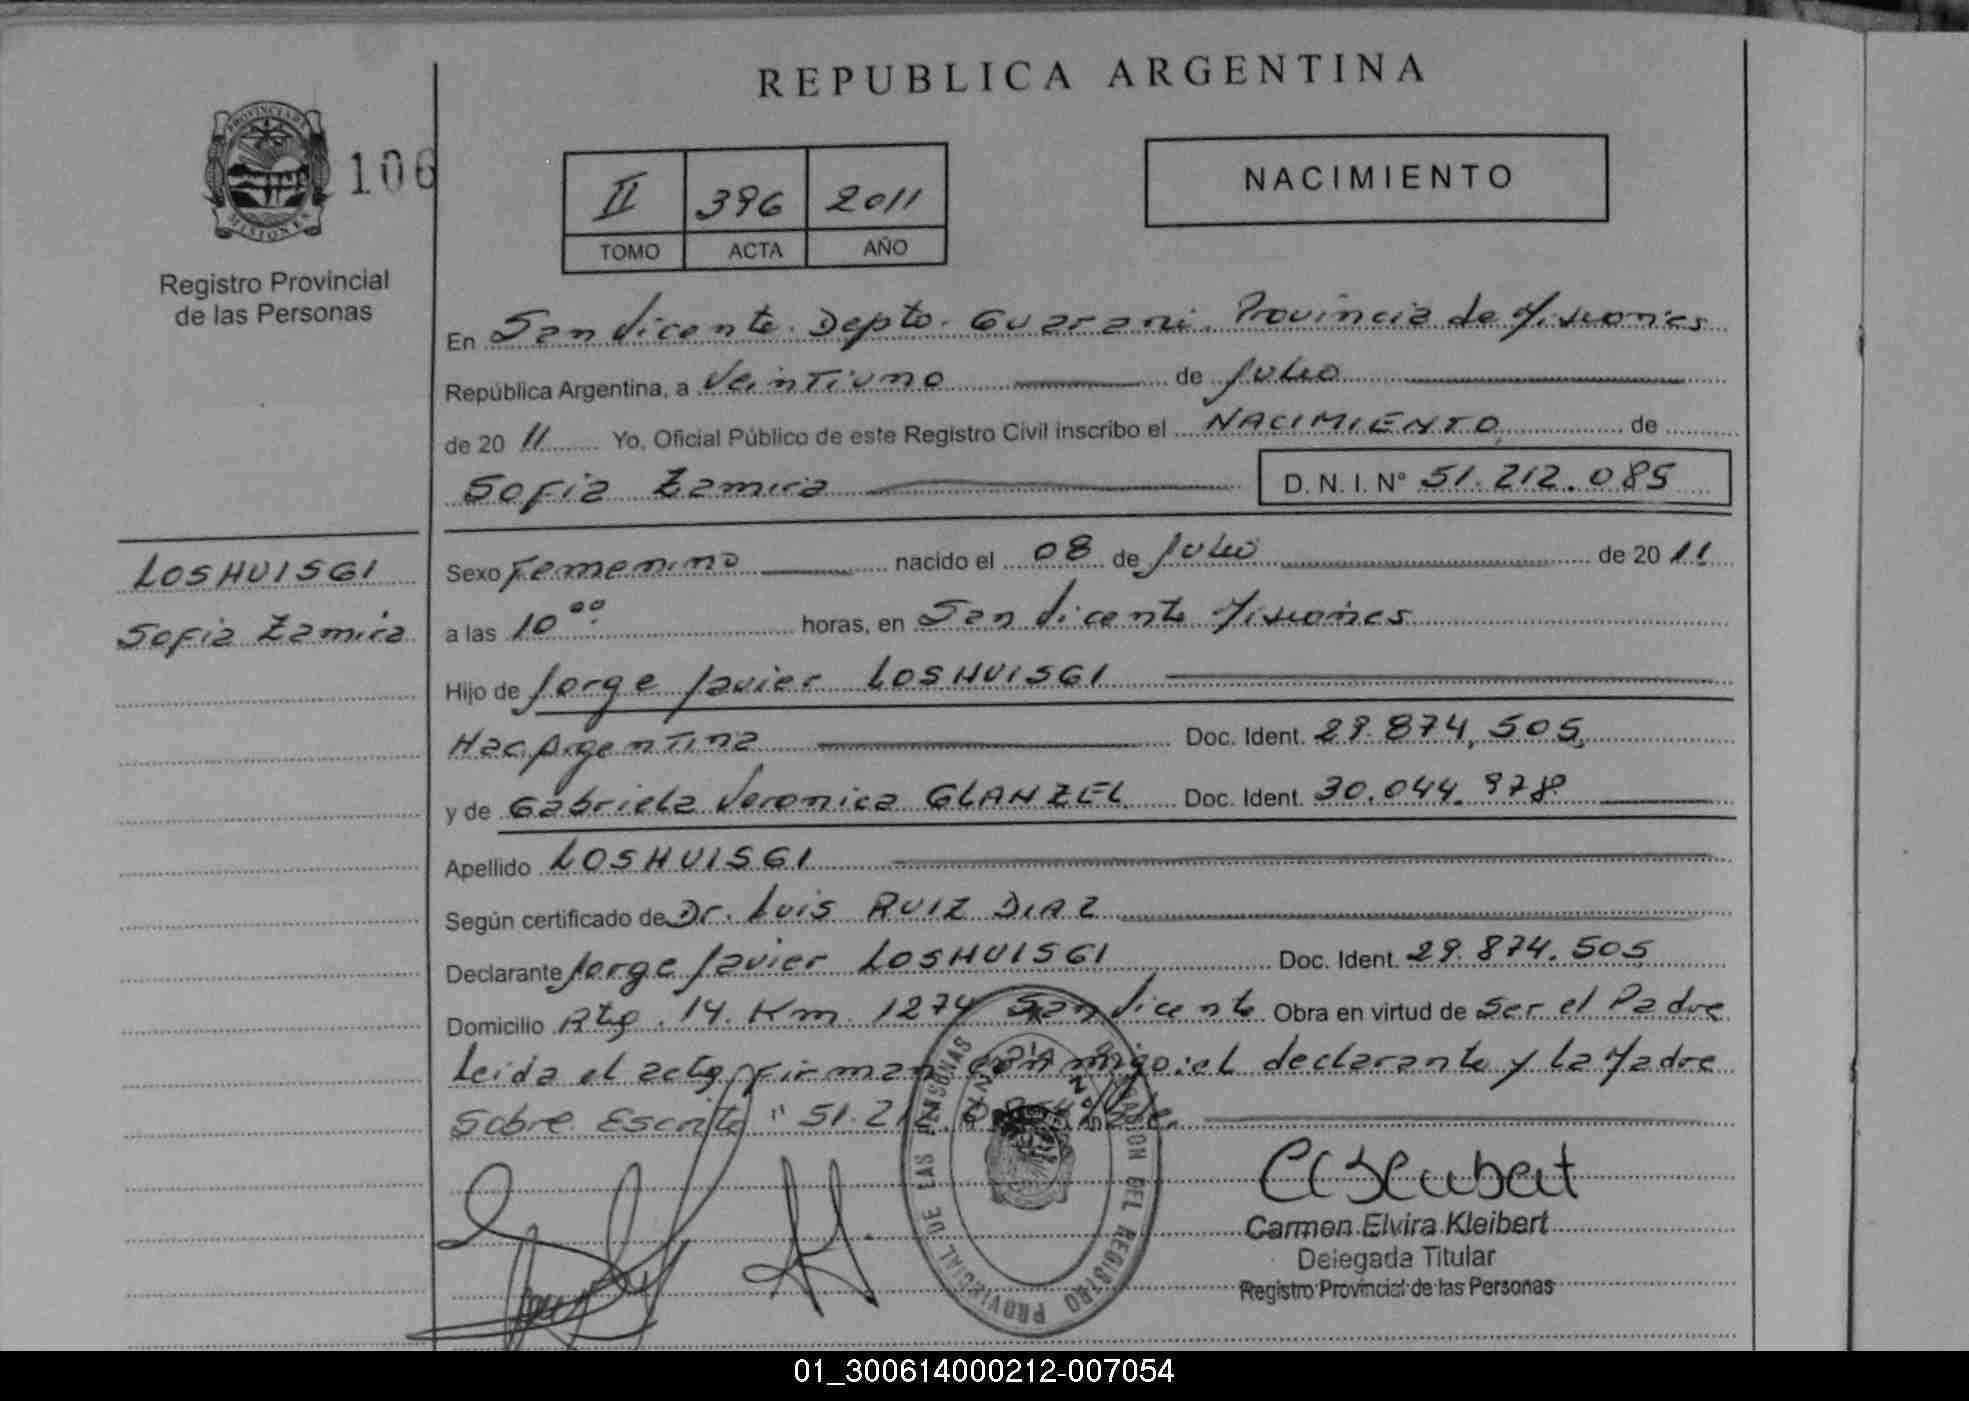 REPUBLICA ARGENTINA
PROVINCIA DE
MISIONES
106
Registro Provincial
de las Personas
II 396 2011
TOMO ACTA AÑO
NACIMIENTO
En San Vicente. Depto. Guarani. Provincia de Misiones
República Argentina, a Veintiuno de Julio
de 20 11 Yo, Oficial Público de este Registro Civil inscribo el NACIMIENTO de
Sofia Zamira D. N. I. N° 51.212.085
LOSHUISGI
Sofia Zamira
Sexo Femenino nacido el 08 de Julio de 20 11
a las 10 oo horas, en San Vicente Misiones
Hijo de Jorge Javier LOSHUISGI
Nac. Argentina Doc. Ident. 29.874.505
y de Gabriela Veronica GLANZEL Doc. Ident. 30.044.978
Apellido LOSHUISGI
Según certificado de Dr. Luis RUIZ DIAZ
Declarante Jorge Javier LOSHUISGI Doc. Ident. 29.874.505
Domicilio Rta. 14. Km. 1274 San Vicente Obra en virtud de Ser el Padre
Leida el acta firman conmigo: el declarante y la Madre
Sobre Escrito " 51.212. Vale.
REGISTRO PROVINCIAL DE LAS PERSONAS
Carmen Elvira Kleibert
Delegada Titular
Registro Provincial de las Personas
01_300614000212-007054